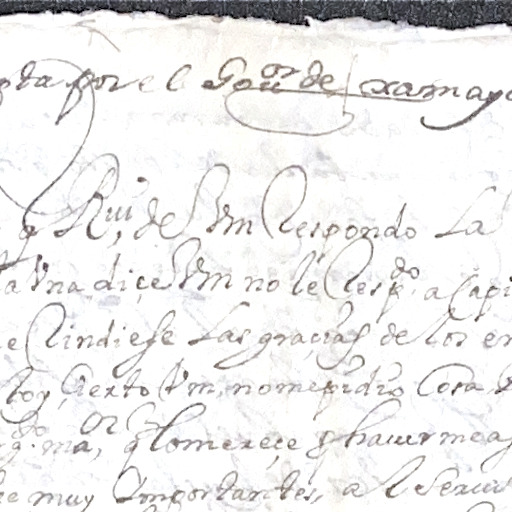 pta por el Gou.or de xamayc
q Rui, de Vm Respondo La
a Vna diçe Vm no le Resp.do a Capi
e Rindiese Las graçias de los en
toy Çierto Vm, no me pidio Cosa
g.do ma,or q lo mereçe p hauerme a
e muy Importantes, al seruí